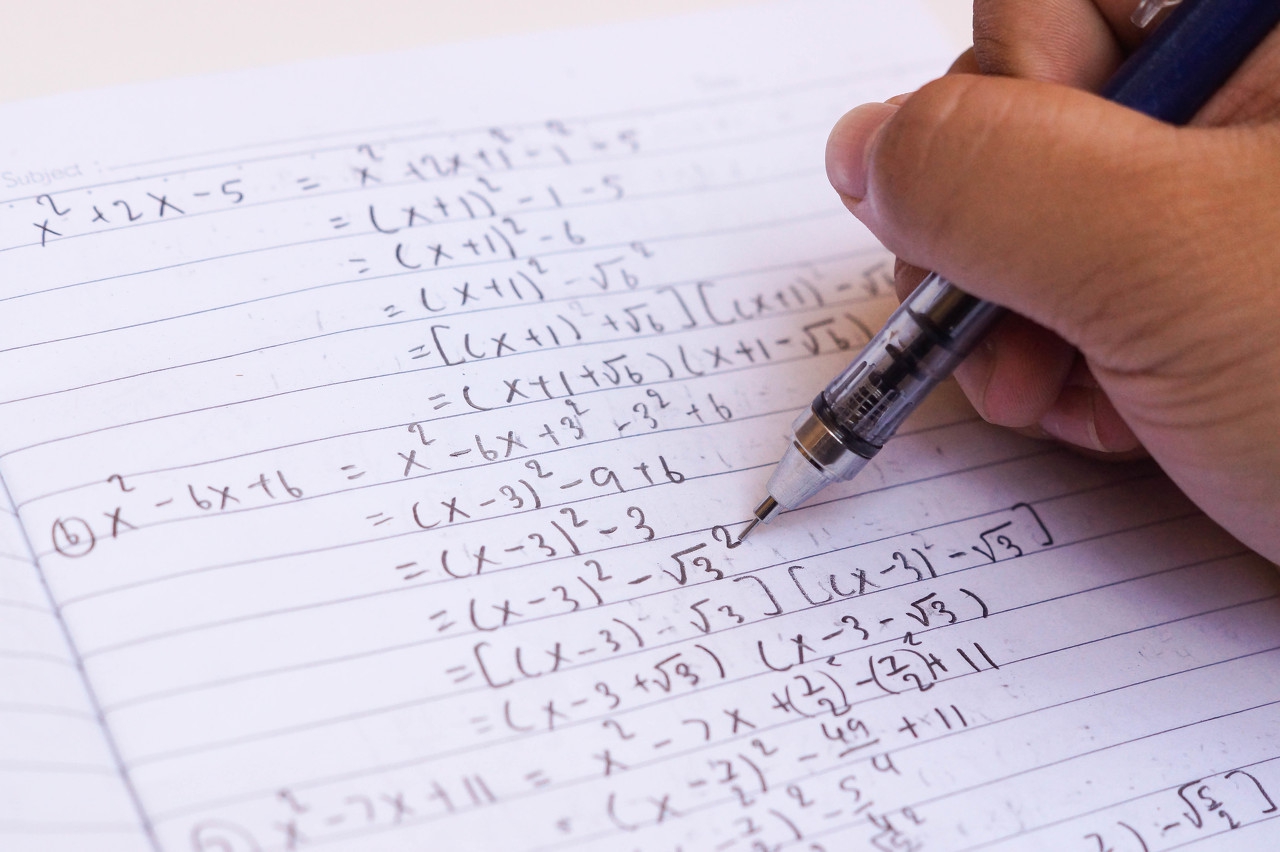 Subject :
x² + 2x - 5 = x² + 2x + 1² - 1² - 5
= (x+1)² - 1 - 5
= (x+1)² - 6
= (x+1)² - √6²
= [(x+1) + √6] [(x+1) - √6
= (x+1+√6)(x+1-√6)
(b) x² - 6x + 6 = x² - 6x + 3² - 3² + 6
= (x-3)² - 9 + 6
= (x-3)² - 3
= (x-3)² - √3²
= [(x-3) - √3] [(x-3) - √3]
= (x-3+√3) (x-3-√3)
x² - 7x + 11 = x² - 7x + (7/2)² - (7/2)² + 11
(x - 7/2)² - 49/4 + 11
7/2)² - 5/4
) - √5/2]